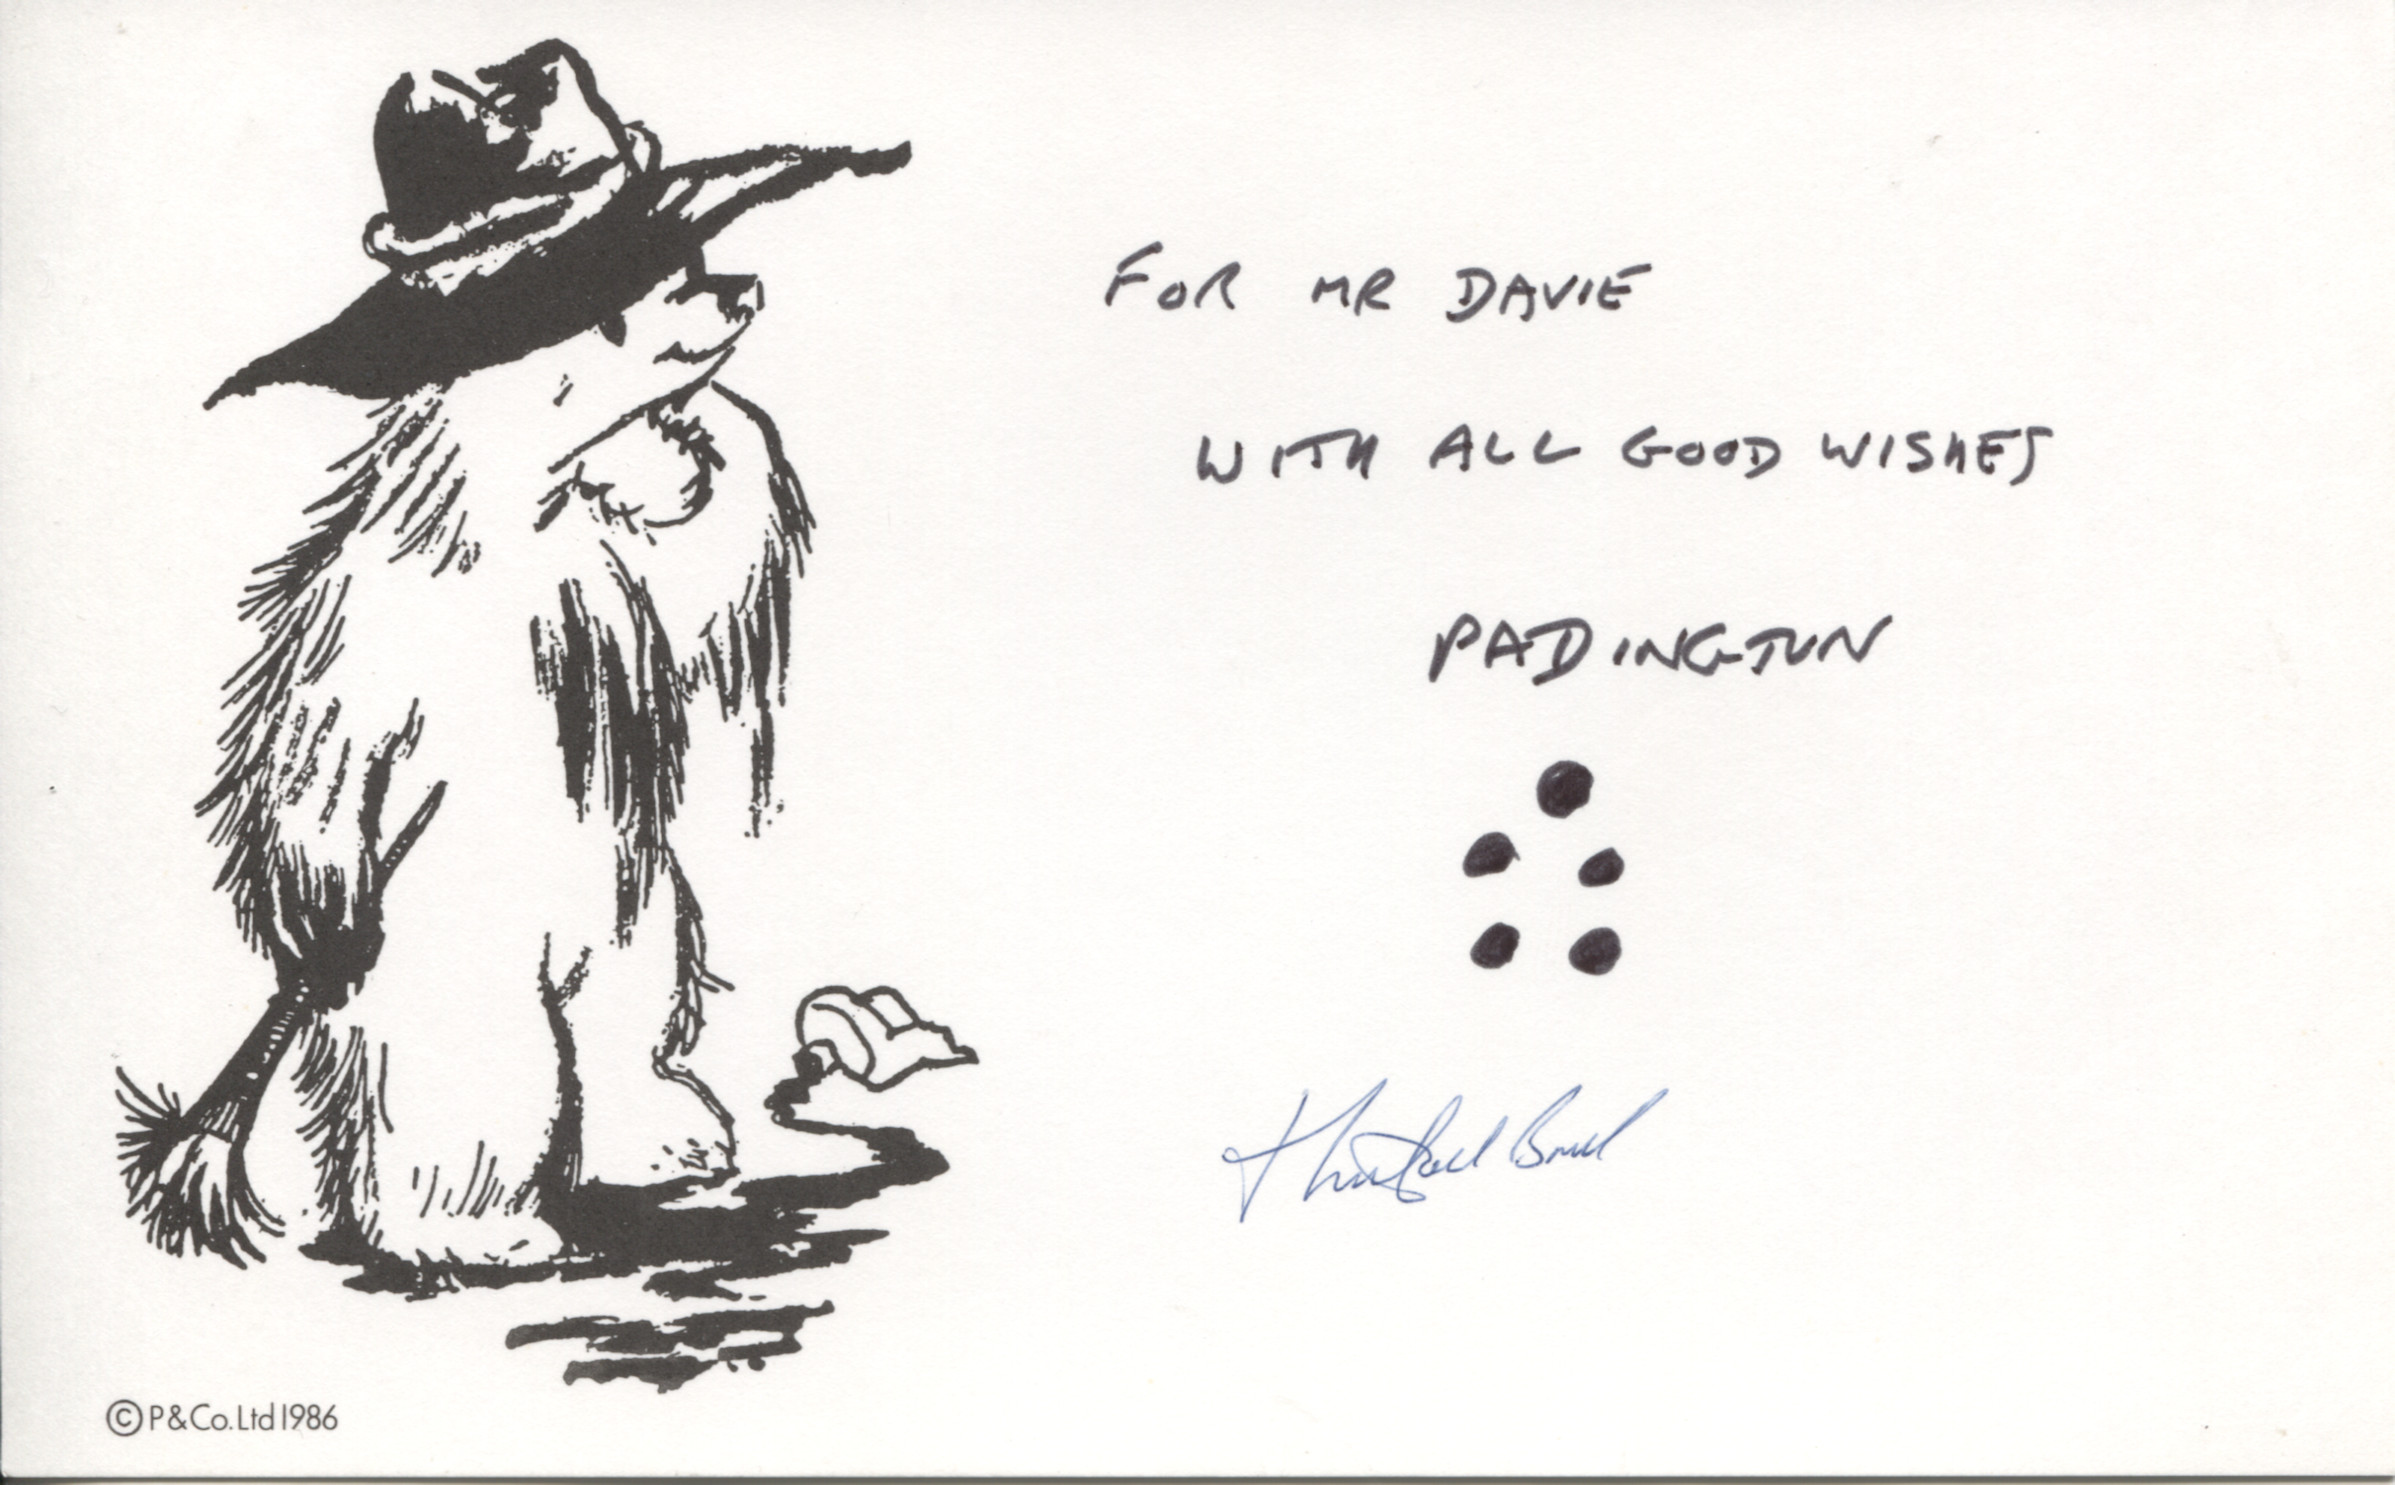 FOR MR DAVIE
WITH ALL GOOD WISHES
PADINGTUN
Michael Bond
© P&Co. Ltd 1986